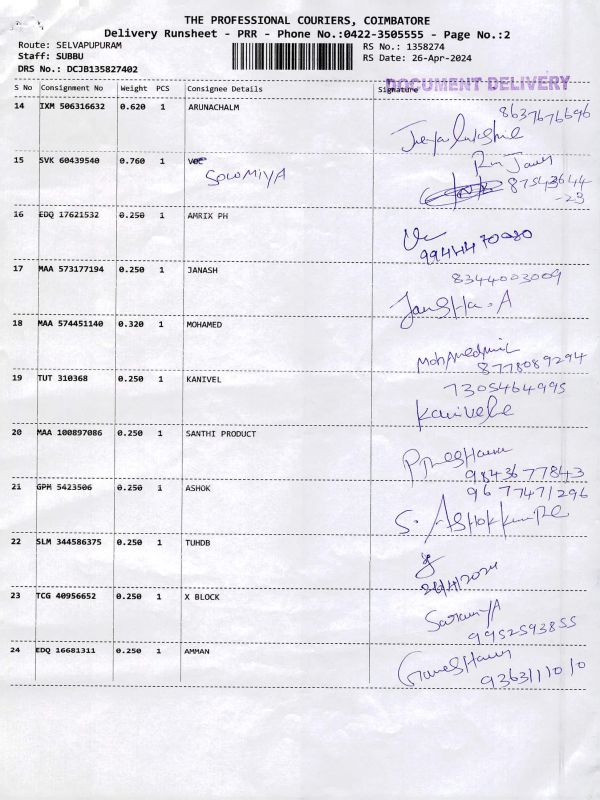 THE PROFESSIONAL COURIERS, COIMBATORE
Delivery Runsheet - PRR - Phone No.:0422-3505555 - Page No.:2
Route: SELVAPUPURAM RS No.: 1358274
Staff: SUBBU RS Date: 26-Apr-2024
DRS No.: DCJB135827402
DOCUMENT DELIVERY
S No Consignment No Weight PCS Consignee Details Signature
14 IXM 506316632 0.620 1 ARUNACHALM
8637676696
15 SVK 60439540 0.760 1
SOWMIYA
87543644
-23
16 EDQ 17621532 0.250 1 AMRIX PH
9944470080
17 MAA 573177194 0.250 1 JANASH
8344003009
18 MAA 574451140 0.320 1 MOHAMED
8778089294
19 TUT 310368 0.250 1 KANIVEL
7305464995
Kanivele
20 MAA 100897086 0.250 1 SANTHI PRODUCT
9843677843
21 GPM 5423506 0.250 1 ASHOK
9677471296
S. Ashokkumar
22 SLM 344586375 0.250 1 TUHDB
26/4/2024
23 TCG 40956652 0.250 1 X BLOCK
SaranyA
9952593855
24 EDQ 16681311 0.250 1 AMMAN
9363111010